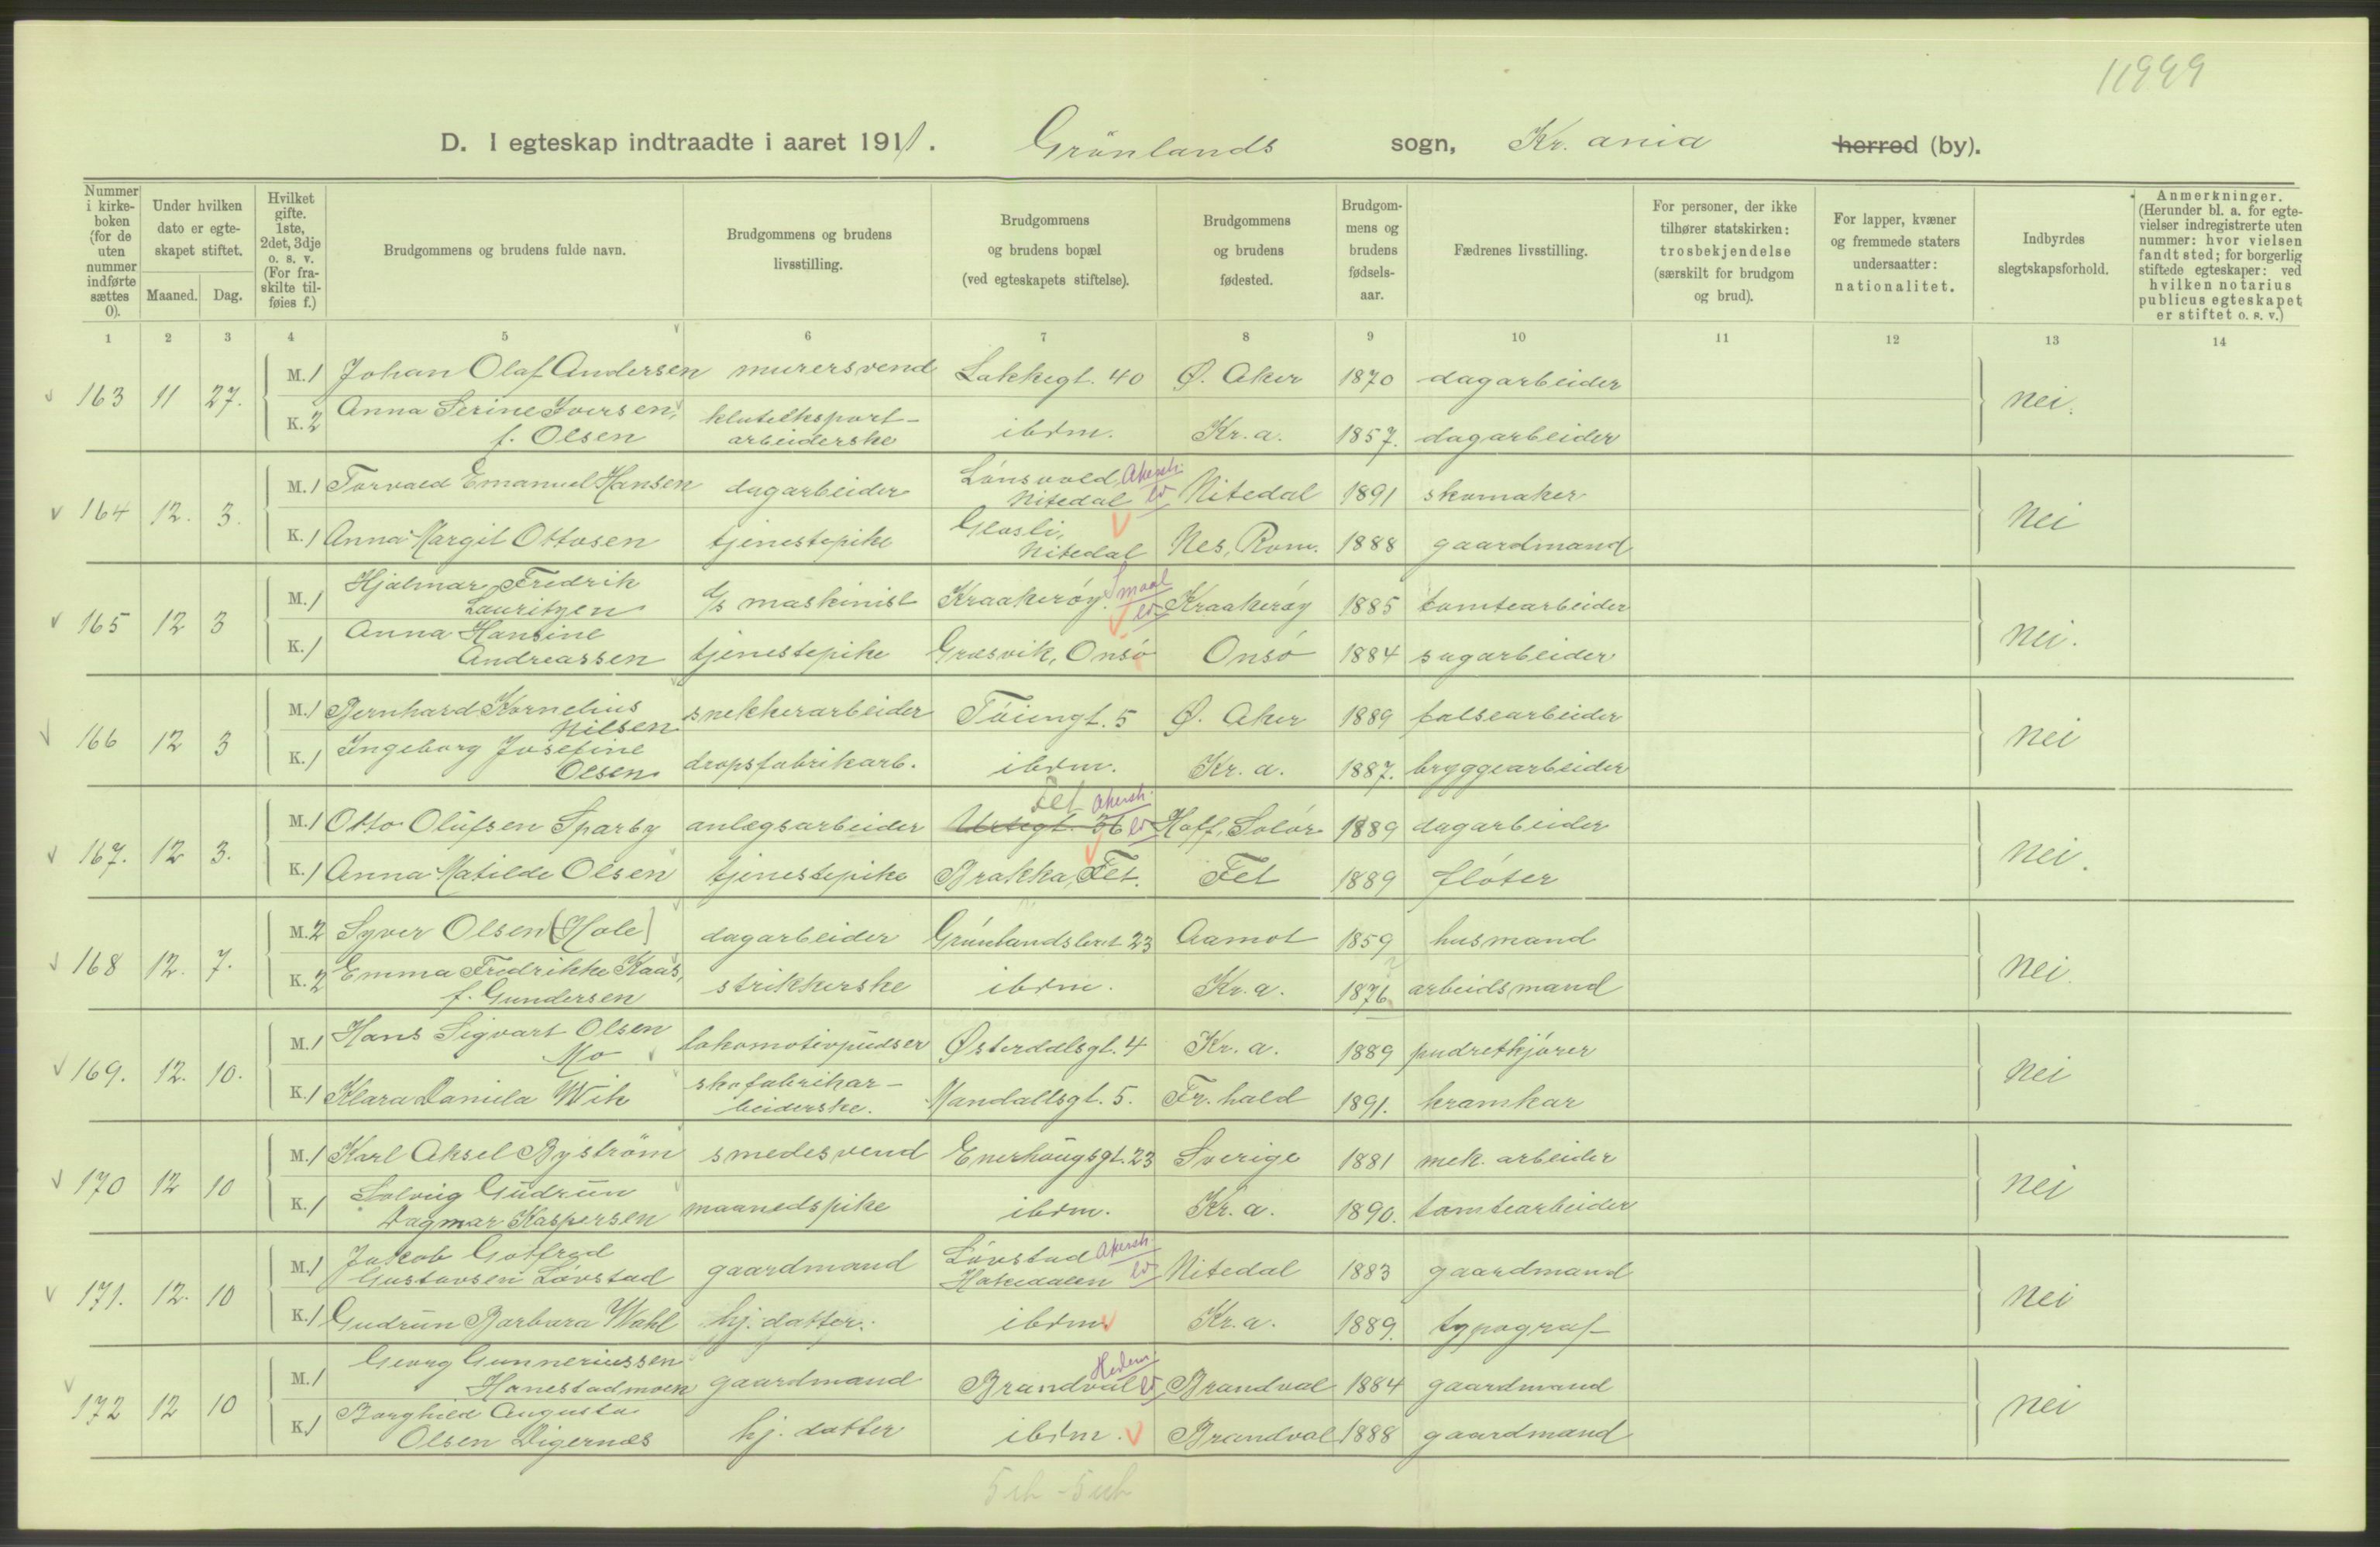 11999
D. I egteskap indtraadte i aaret 1911. Grönlands sogn, Kr. ania herred (by).
Nummer i kirkeboken (for de uten nummer indførte sættes 0).
Under hvilken dato er egteskapet stiftet.
Maaned. Dag.
Hvilket gifte. 1ste, 2det, 3dje o. s. v. (For fraskilte tilføies f.)
Brudgommens og brudens fulde navn.
Brudgommens og brudens livsstilling.
Brudgommens og brudens bopæl (ved egteskapets stiftelse).
Brudgommens og brudens fødested.
Brudgommens og brudens fødselsaar.
Fædrenes livsstilling.
For personer, der ikke tilhører statskirken: trosbekjendelse (særskilt for brudgom og brud).
For lapper, kvæner og fremmede staters undersaatter: nationalitet.
Indbyrdes slegtskapsforhold.
Anmerkninger. (Herunder bl. a. for egtevielser indregistrerte uten nummer: hvor vielsen fandt sted; for borgerlig stiftede egteskaper: ved hvilken notarius publicus egteskapet er stiftet o. s. v.)
1 2 3 4 5 6 7 8 9 10 11 12 13 14
163 11 27. M. 1 Johan Olaf Andersen murersvend Lakkegt. 40 Ø. Aker 1870 dagarbeider nei.
K. 2 Anna Serine Iversen, f. Olsen klutelksport-arbeiderske ibdm. Kr. a. 1857. dagarbeider
164 12. 3. M. 1 Torvald Emanuel Hansen dagarbeider Lönsvold Nitedal Akersh. Nitedal 1891 skomaker nei
K. 1 Anna Margit Ottosen tjenestepike Glosli, Nitedal Nes, Rom. 1888 gaardmand
165 12 3 M. 1 Hjalmar Fredrik Lauritzen D/s maskinist Kraakerøy. Smaal Kraakerøy 1885 tomtearbeider nei.
K. 1 Anna Hansine Andreassen tjenestepike Græsvik, Onsö Onsö 1884 sagarbeider
166 12 3 M. 1 Bernhard Kornelius Nilsen snekkerarbeider Töiengt. 5 Ø. Aker 1889 falsearbeider nei
K. 1 Ingeborg Josefine Olsen dropsfabrikarb. ibdm. Kr. a. 1887. bryggearbeider
167. 12 3. M. 1 Otto Olufsen Sparby anlægsarbeider Urtegt. 36 Fet Akersh. Hoff, Solör 1889 dagarbeider nei.
K. 1 Anna Matilde Olsen tjenestepike Brakka, Fet. Fet 1889 flöter
168 12. 7. M. 2 Syver Olsen (Hole) dagarbeider Grönlandsleret 23 Aamot 1859 husmand nei.
K. 2 Emma Fredrikke Kaas, f. Gundersen strikkerske ibdm. Kr. a. 1876 arbeidsmand
169. 12. 10. M. 1 Hans Sigvart Olsen Mo lokomotivpudser Østerdalsgt. 4 Kr. a. 1889 pudretkjörer nei
K. 1 Klara Daniela Wik skofabrikar-beiderske. Mandallsgt. 5. Fr. hald 1891. kramkar
170 12 10 M. 1 Karl Aksel Byström smedesvend Enerhaugsgt. 23 Sverige 1881 mek. arbeider nei
K. 1 Solveig Gudrun Dagmar Kaspersen maanedspike ibdm. Kr. a. 1890. tomtearbeider
171. 12. 10 M. 1 Jakob Gotfred Gustavsen Lövstad gaardmand Lövstad Hakedalen Akersh. Nitedal 1883 gaardmand nei
K. 1 Gudrun Barbara Wahl hj. datter. ibdm. Kr. a. 1889. typograf
172 12 10 M. 1 Georg Gunneriussen Hanestadmoen gaardmand Brandval Hedem. Brandval 1884 gaardmand nei
K. 1 Borghild Augusta Olsen Digernæs hj. datter ibdm. Brandval 1888 gaardmand